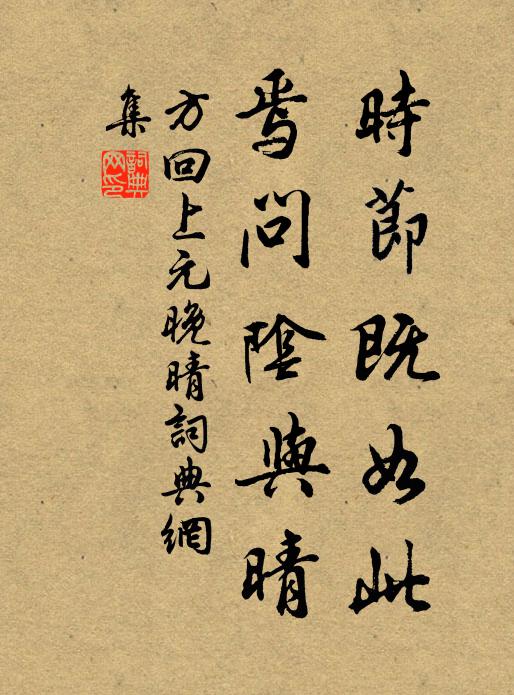 時節既如此
焉問陰與晴
方回上元晚晴詞典網
集
詞典
网印